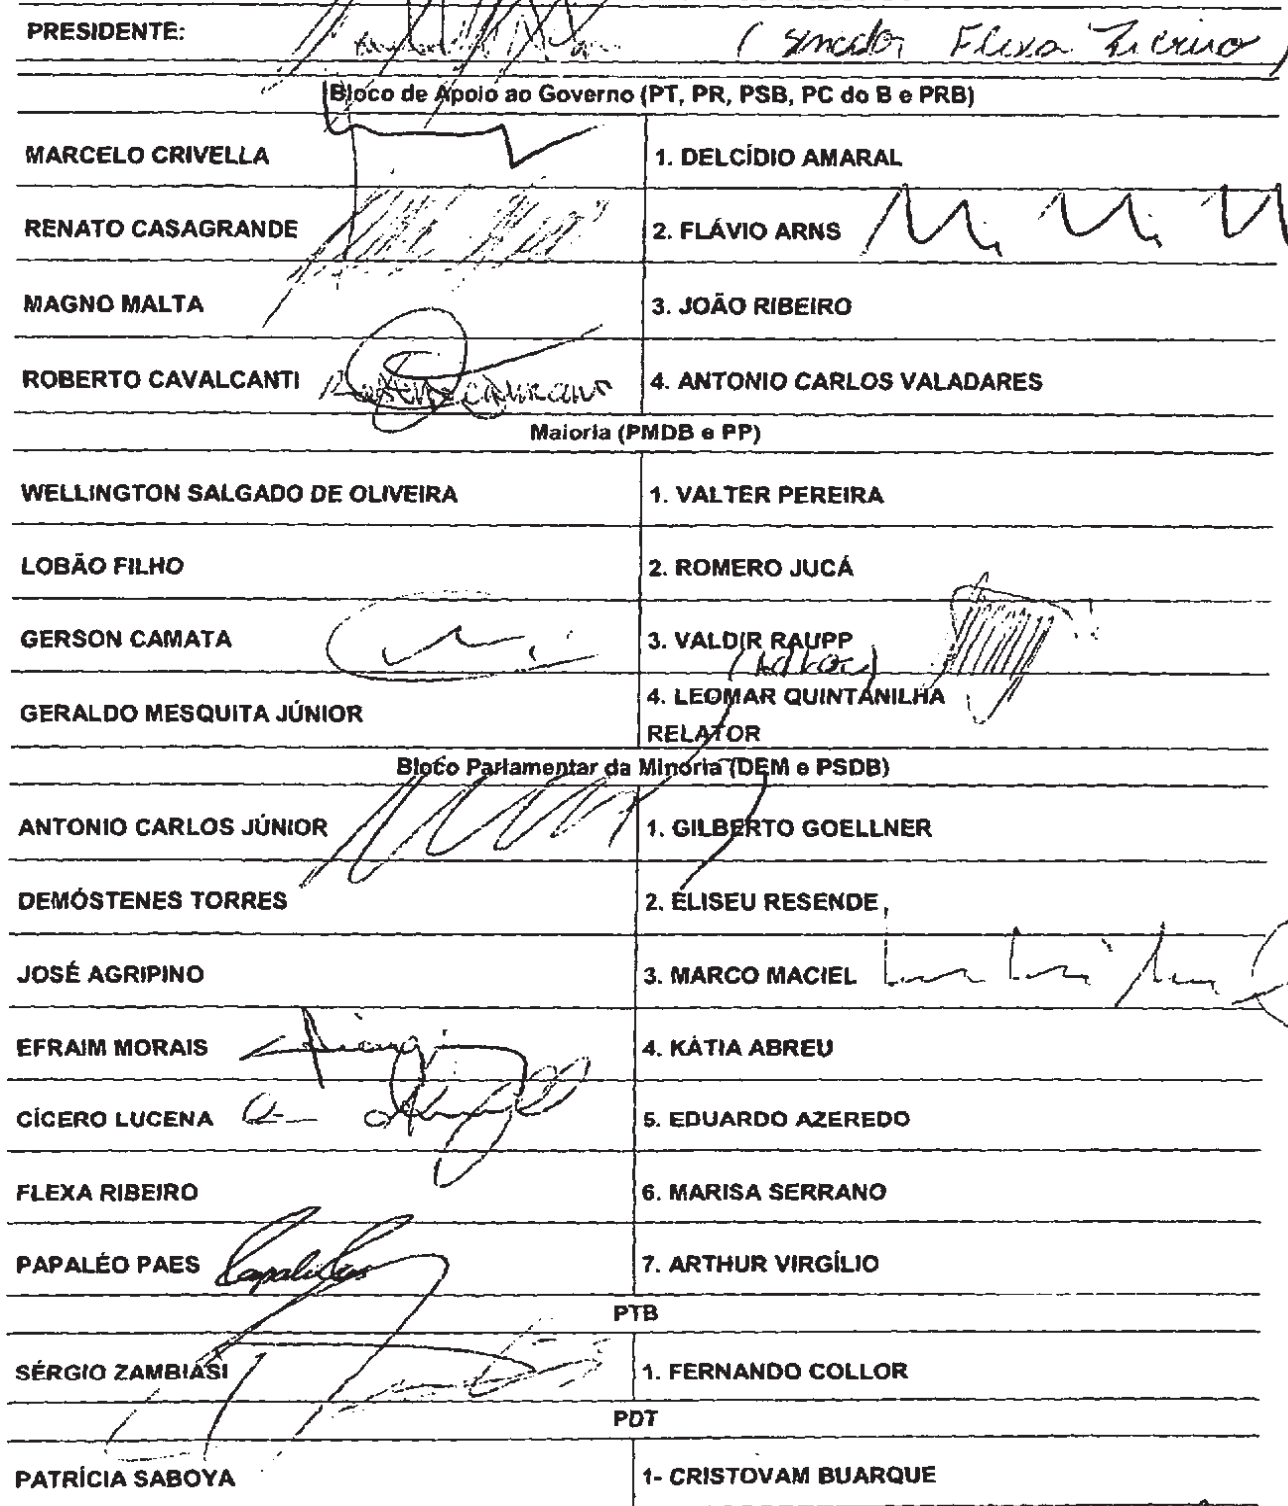 PRESIDENTE: (Senador Flexa Ribeiro)
Bloco de Apoio ao Governo (PT, PR, PSB, PC do B e PRB)
MARCELO CRIVELLA 1. DELCÍDIO AMARAL
RENATO CASAGRANDE 2. FLÁVIO ARNS
MAGNO MALTA 3. JOÃO RIBEIRO
ROBERTO CAVALCANTI 4. ANTONIO CARLOS VALADARES
Maioria (PMDB e PP)
WELLINGTON SALGADO DE OLIVEIRA 1. VALTER PEREIRA
LOBÃO FILHO 2. ROMERO JUCÁ
GERSON CAMATA 3. VALDIR RAUPP
GERALDO MESQUITA JÚNIOR 4. LEOMAR QUINTANILHA
RELATOR
Bloco Parlamentar da Minoria (DEM e PSDB)
ANTONIO CARLOS JÚNIOR 1. GILBERTO GOELLNER
DEMÓSTENES TORRES 2. ELISEU RESENDE
JOSÉ AGRIPINO 3. MARCO MACIEL
EFRAIM MORAIS 4. KÁTIA ABREU
CÍCERO LUCENA 5. EDUARDO AZEREDO
FLEXA RIBEIRO 6. MARISA SERRANO
PAPALÉO PAES 7. ARTHUR VIRGÍLIO
PTB
SÉRGIO ZAMBIASI 1. FERNANDO COLLOR
PDT
PATRÍCIA SABOYA 1- CRISTOVAM BUARQUE